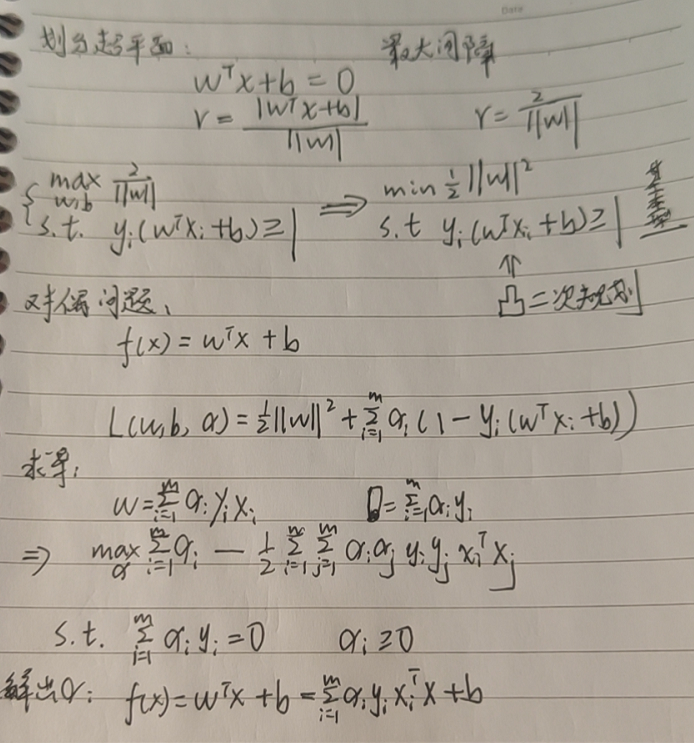 Date
划分超平面: 最大间隔
w^T x + b = 0
r = |w^T x + b| / ||w|| r = 2 / ||w||
{ max_{w,b} 2 / ||w|| ⇒ min 1/2 ||w||^2 基本型
s.t. y_i(w^T x_i + b) ≥ 1 s.t y_i(w^T x_i + b) ≥ 1
⇑
对偶问题、 凸二次规划
f(x) = w^T x + b
L(w, b, α) = 1/2 ||w||^2 + Σ_{i=1}^m α_i (1 - y_i(w^T x_i + b))
求导:
w = Σ_{i=1}^m α_i y_i x_i 0 = Σ_{i=1}^m α_i y_i
⇒ max_α Σ_{i=1}^m α_i - 1/2 Σ_{i=1}^m Σ_{j=1}^m α_i α_j y_i y_j x_i^T x_j
s.t. Σ_{i=1}^m α_i y_i = 0 α_i ≥ 0
解出α: f(x) = w^T x + b = Σ_{i=1}^m α_i y_i x_i^T x + b